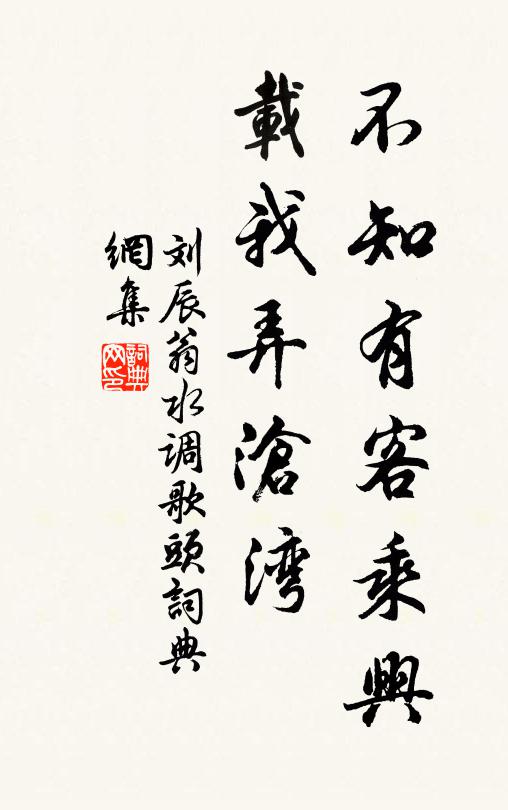 不知有客乘興
載我弄滄湾
刘辰翁水调歌頭詞典
網集
詞典
网印